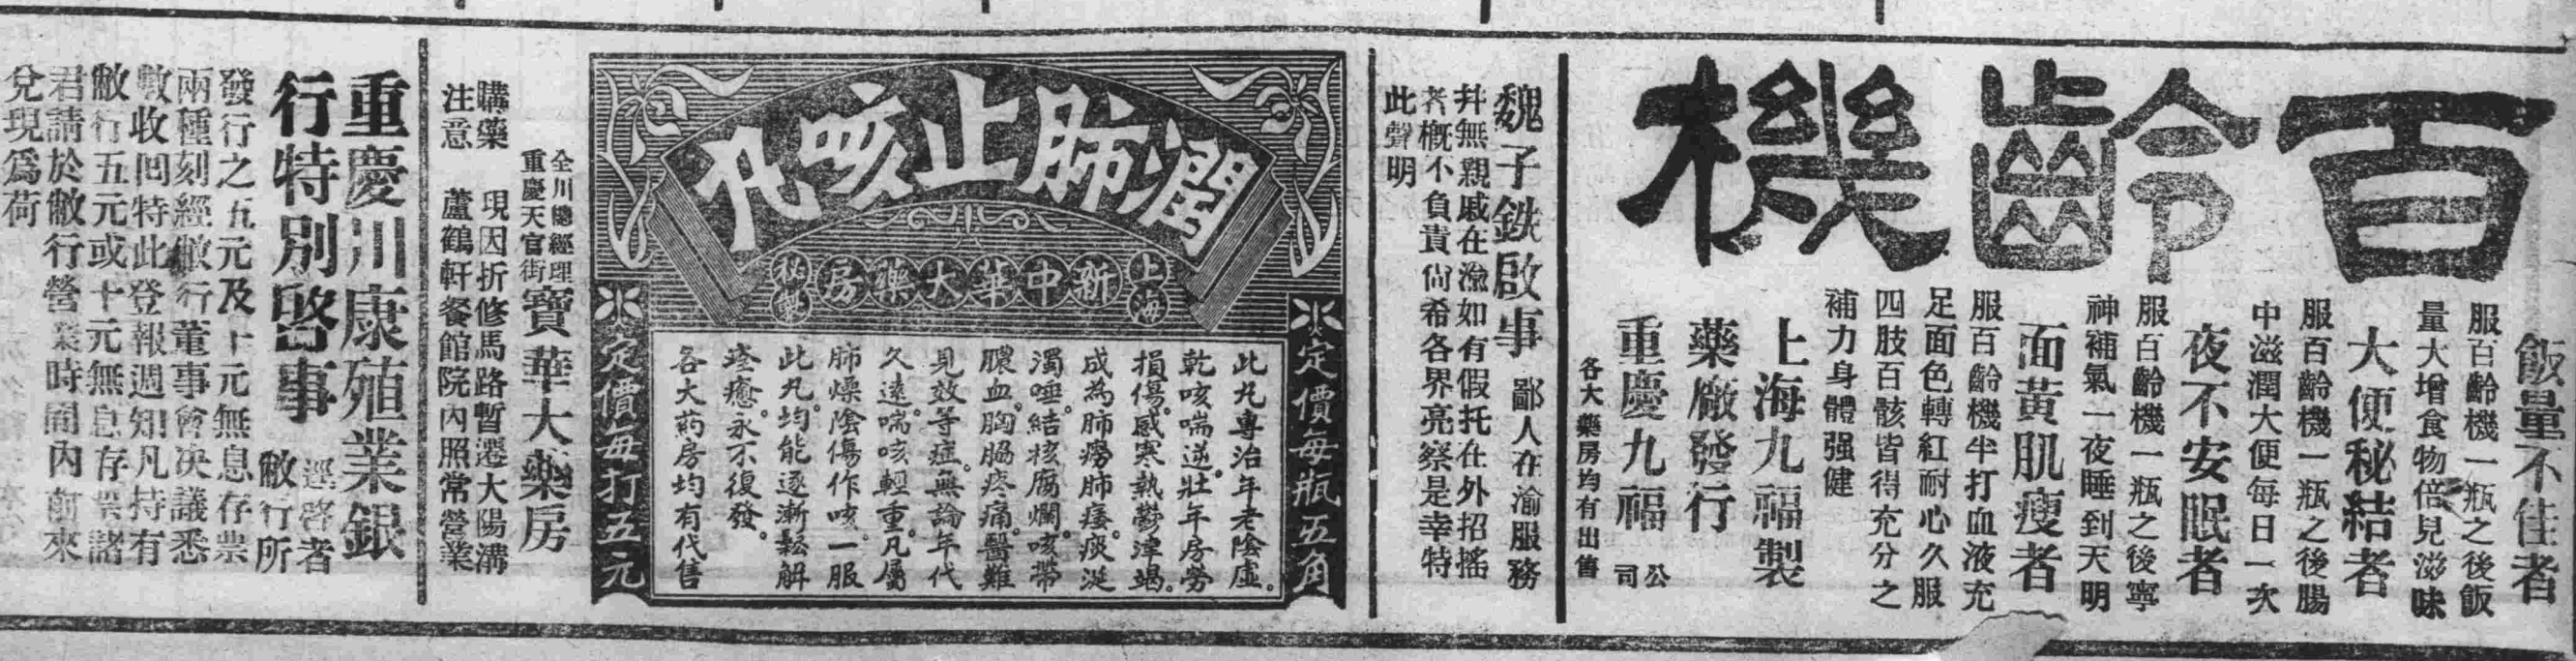 百齡機
飯量不佳者
服百齡機一瓶之後飯
量大增食物倍見滋味
大便秘結者
服百齡機一瓶之後腸
中滋潤大便每日一次
夜不安眠者
服百齡機一瓶之後寧
神補氣一夜睡到天明
面黃肌瘦者
服百齡機半打血液充
足面色轉紅耐心久服
四肢百骸皆得充分之
補力身體强健
上海九福製
藥廠發行
重慶九福公司
各大藥房均有出售
魏子鉄啟事 鄙人在渝服務
并無親戚在渝如有假托在外招搖
者概不負責尙希各界亮察是幸特
此聲明
潤肺止咳丸
上海新中華大藥房秘製
定價每瓶五角
此丸專治年老陰虛。
乾咳喘逆。壯年房勞
損傷。感寒熱鬱津竭。
成為肺癆肺痿。痰涎
濁唾。結核腐爛。咳帶
膿血。胸脇疼痛。醫難
見效等症。無論年代
久遠。喘咳輕重。凡屬
肺燥陰傷作咳。一服
此丸。均能逐漸鬆解
痊癒。永不復發。
各大葯房均有代售
定價每打五元
全川總經理
重慶天官街
寶華大藥房
購藥注意
現因折修馬路暫遷大陽溝
蘆鶴軒餐館院內照常營業
重慶川康殖業銀
行特別啓事
逕啓者
敝行所
發行之五元及十元無息存票
兩種刻經敝行董事會决議悉
數收回特此登報週知凡持有
敝行五元或十元無息存票諸
君請於敝行營業時間內前來
兌現爲荷